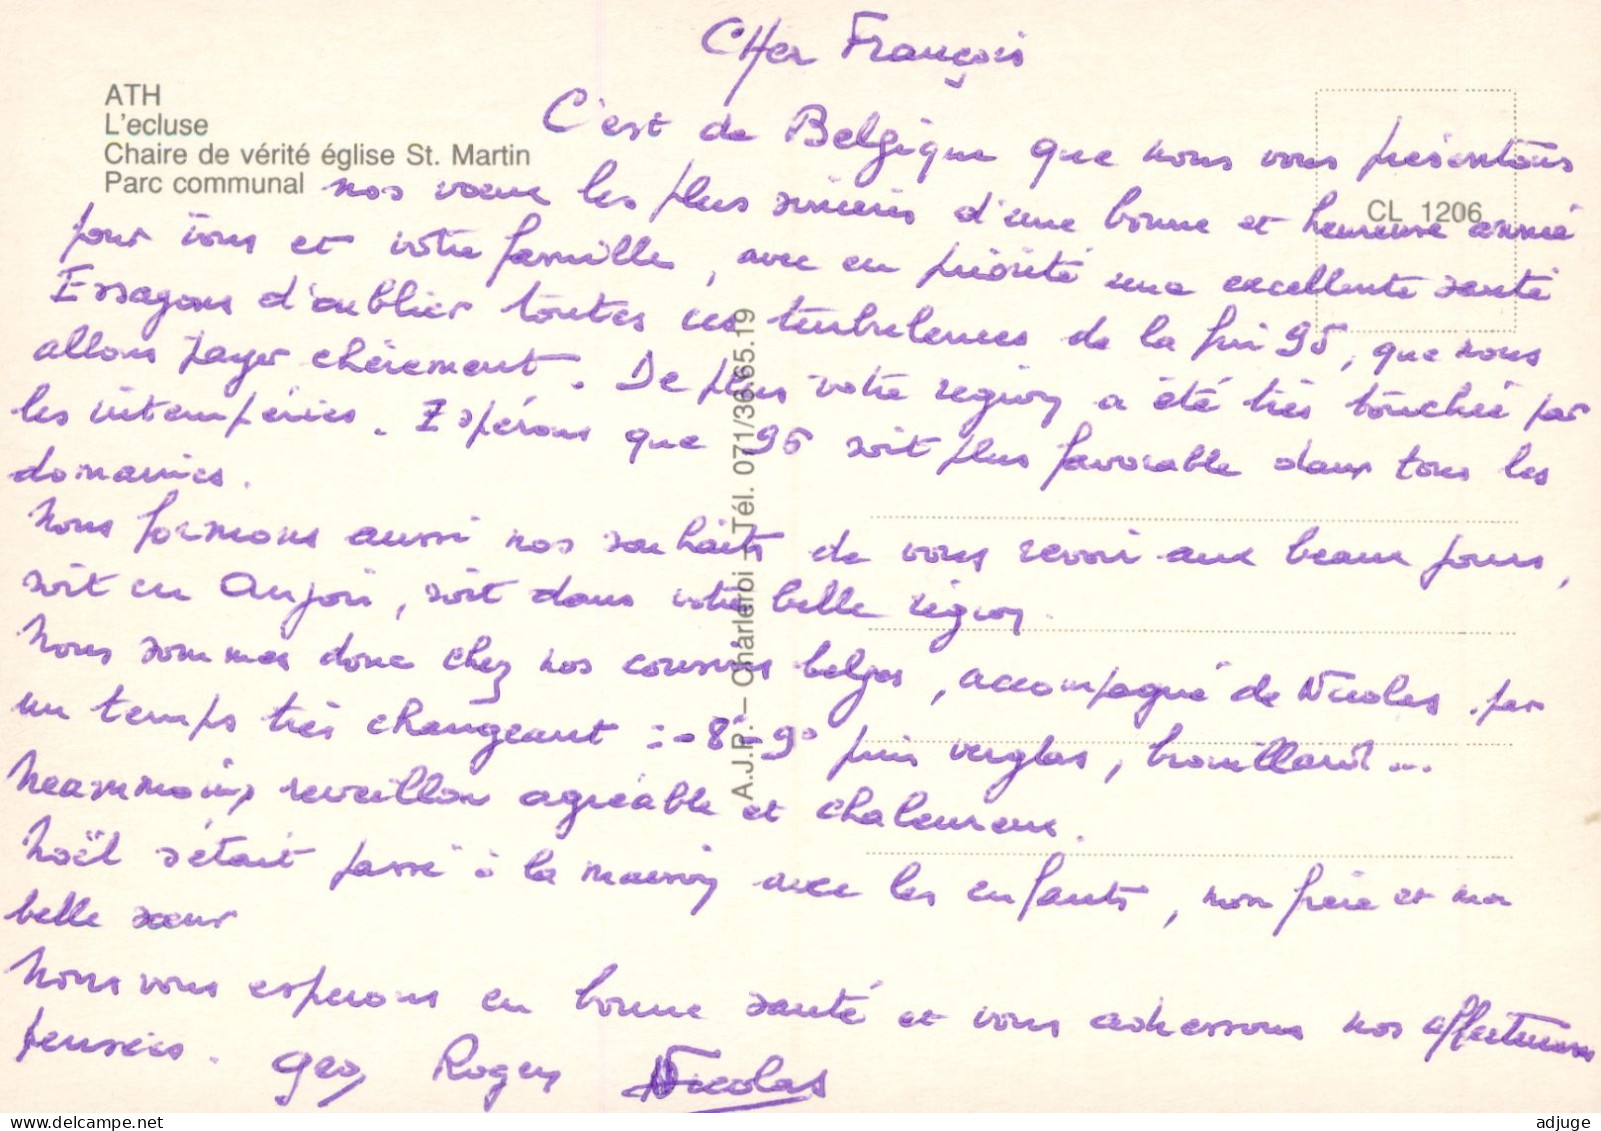 CHer François
ATH
L'ecluse
Chaire de vérité église St. Martin
Parc communal
CL 1206
C'est de Belgique que nous vous présentons
nos vœux les plus sincères d'une bonne et heureuse année
pour vous et votre famille, avec en priorité une excellente santé
Essayons d'oublier toutes ces turbulences de la fin 95, que nous
allons payer chèrement. De plus votre région a été très touchée par
les intempéries. Espérons que 96 soit plus favorable dans tous les
domaines.
Nous formons aussi nos souhaits de vous revoir aux beaux jours,
soit en Anjou, soit dans votre belle région.
Nous sommes donc chez nos cousins belges, accompagné de Nicolas par
un temps très changeant : -8 -9° puis verglas, brouillard...
Neammoins reveillon agréable et chaleureux.
Noël s'était passé à la maison avec les enfants, mon frère et ma
belle sœur
Nous vous esperons en bonne santé et vous adressons nos affectueuses
pensées. Geo, Roger, Nicolas
A.J.P. – Charleroi – Tél. 071/36.65.19
www.delcampe.net
adjuge